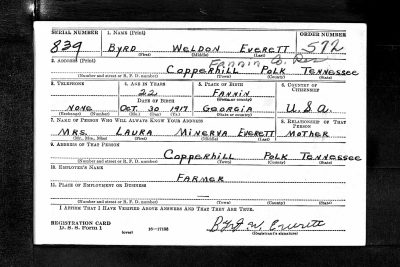 SERIAL NUMBER 1. NAME (Print) ORDER NUMBER
839 BYRD WELDON EVERETT 572
(First) (Middle) (Last)
2. ADDRESS (Print) Fannin Co. Res
Copperhill Polk Tennessee
(Number and street or R. F. D. number) (Town) (County) (State)
3. TELEPHONE 4. AGE IN YEARS 5. PLACE OF BIRTH 6. COUNTRY OF CITIZENSHIP
22 FANNIN
DATE OF BIRTH (Town or county)
NONE OCT. 30 1917 GEORGIA U.S.A.
(Exchange) (Number) (Mo.) (Day) (Yr.) (State or country)
7. NAME OF PERSON WHO WILL ALWAYS KNOW YOUR ADDRESS 8. RELATIONSHIP OF THAT PERSON
MRS. LAURA MINERVA EVERETT MOTHER
(Mr., Mrs., Miss) (First) (Middle) (Last)
9. ADDRESS OF THAT PERSON
Copperhill Polk Tennessee
(Number and street or R. F. D. number) (Town) (County) (State)
10. EMPLOYER'S NAME
FARMER
11. PLACE OF EMPLOYMENT OR BUSINESS
(Number and street or R. F. D. number) (Town) (County) (State)
I AFFIRM THAT I HAVE VERIFIED ABOVE ANSWERS AND THAT THEY ARE TRUE.
REGISTRATION CARD
D. S. S. Form 1 (over) 16—17105 (Registrant's signature)